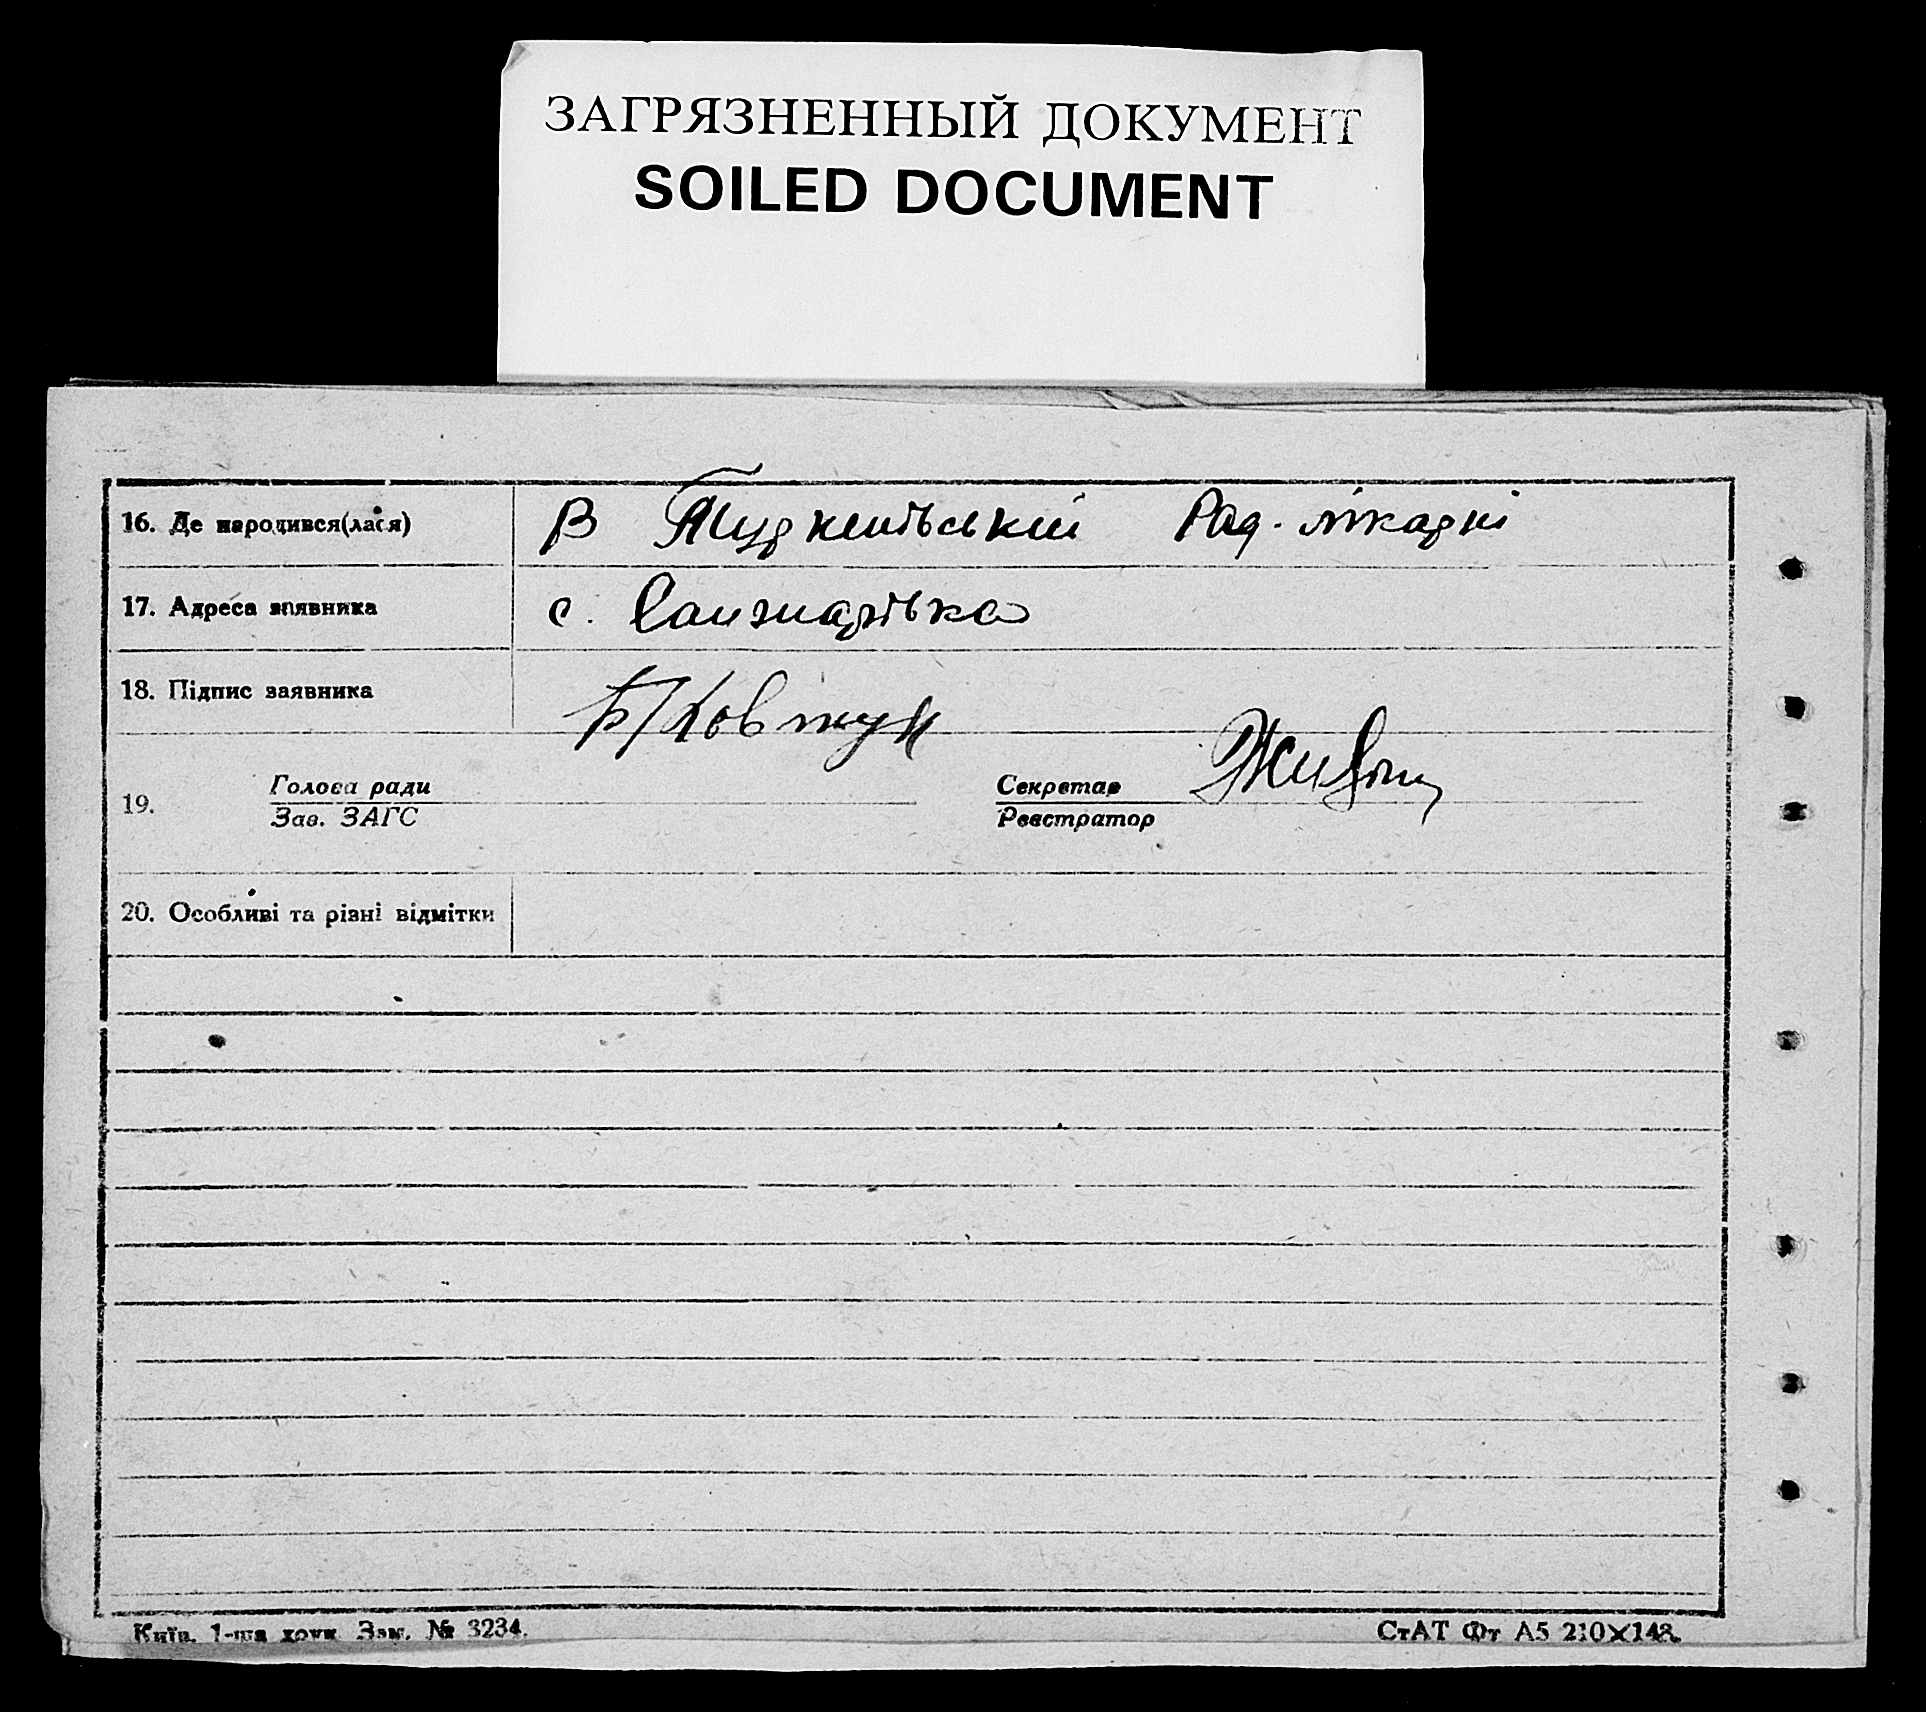 ЗАГРЯЗНЕННЫЙ ДОКУМЕНТ
SOILED DOCUMENT
16. Де народився(лася) В Рад. лікарні
17. Адреса заявника с. Санжарівка
18. Підпис заявника Ковтун
19. Голова ради Секретар
Зав. ЗАГС Реєстратор
20. Особливі та різні відмітки
Київ. 1-ша друк. Зам. № 3234.
СтАТ Фт А5 210×148.